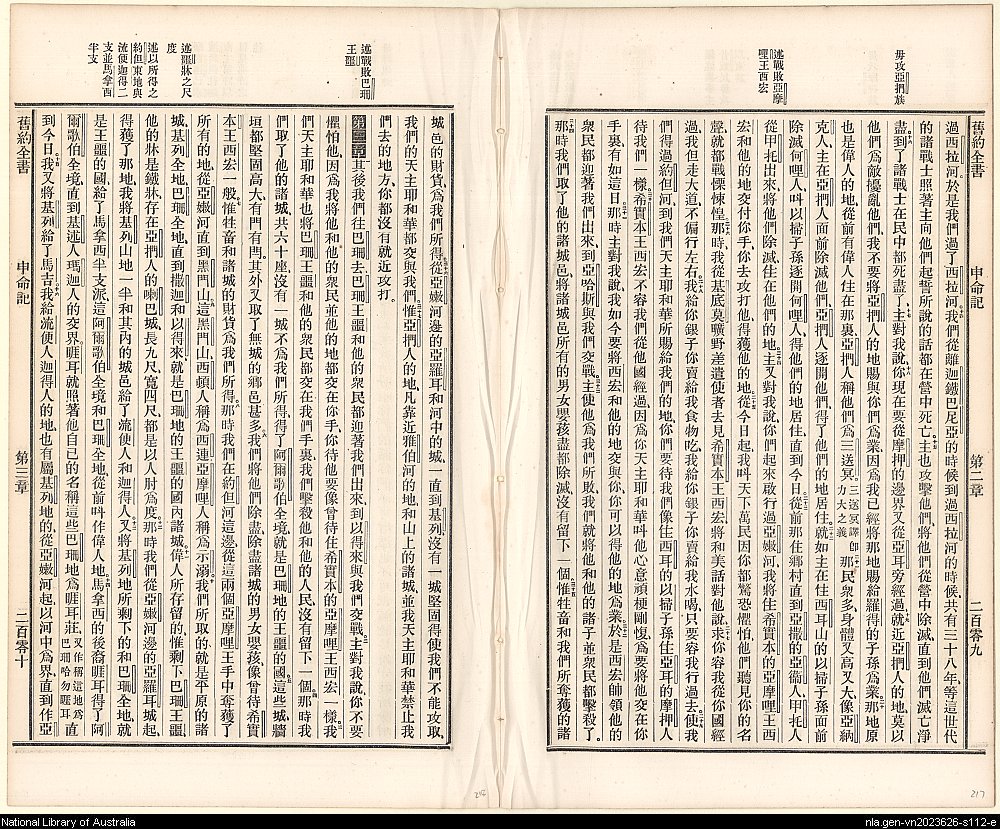 毋攻亞捫族
述戰敗亞摩
哩王西宏
舊約全書 申命記 第二章 二百零九
過西拉河、於是我們過了西拉河、我們從離迦鐵巴尼亞的時候到過西拉河的時候、共有三十八年、等這世代
的諸戰士照著主向他們起誓所說的話都在營中死亡、主也攻擊他們、將他們從營中除滅、直到他們滅亡淨
盡、到了諸戰士在民中都死盡了、主對我說、你現在要從摩押的邊界又從亞耳旁經過、就近亞捫人的地、莫以
他們爲敵擾亂他們、我不要將亞捫人的地賜與你們爲業、因爲我已經將那地賜給羅得的子孫爲業、那地原
也是偉人的地、從前有偉人住在那裏、亞捫人稱他們爲三送冥、三送冥譯卽力大之義那民衆多、身體又高又大、像亞納
克人、主在亞捫人面前除滅他們、亞捫人逐開他們、得了他們的地居住、就如主在住西耳山的以掃子孫面前
除滅何哩人、叫以掃子孫逐開何哩人、得他們的地居住、直到今日、從前那住鄉村直到亞撒的亞衞人、甲托人
從甲托出來、將他們除滅、住在他們的地、主又對我說、你們起來啟行過亞嫩河、我將住希實本的亞摩哩王西
宏和他的地交付你手、你去攻打他、得獲他的地、從今日起、我叫天下萬民因你都驚恐懼怕、他們聽見你的名
聲就都戰慄悚惶、那時、我從基底莫曠野差遣使者去見希實本王西宏、將和美話對他說、求你容我從你國經
過、我但走大道、不偏行左右、我給你銀子、你賣給我食物吃、我給你銀子、你賣給我水喝、只要容我行過去、使我
們得過約但河到我們天主耶和華所賜給我們的地、你們要待我們像住西耳的以掃子孫住亞耳的摩押人
待我們一樣、希實本王西宏不容我們從他國經過、因爲你天主耶和華叫他心意頑梗剛愎、爲要將他交在你
手裏、有如這日、那時主對我說、我如今要將西宏和他的地交與你、你可以得他的地爲業、於是西宏帥領他的
衆民都迎著我們出來、到亞哈斯與我們交戰、主使他爲我們所敗、我們就將他和他的諸子並衆民都擊殺了、
那時我們取了他的諸城邑、將諸城邑所有的男女嬰孩盡都除滅、沒有留下一個、惟牲畜和我們所奪獲的諸
217
述戰敗巴珊
王噩
述噩牀之尺
度
述以所得之
約但東地與
流便迦得二
支並馬拿西
半支
城邑的財貨、爲我們所得、從亞嫩河邊的亞羅耳和河中的城、一直到基列、沒有一城堅固得使我們不能攻取、
我們的天主耶和華都交與我們、惟亞捫人的地、凡靠近雅伯河的地、和山上的諸城、並我天主耶和華禁止我
們去的地方、你都沒有就近攻打。
第三章其後我們往巴珊去、巴珊王噩和他的衆民都迎著我們出來、到以得來與我們交戰、主對我說、你不要
懼怕他、因爲我將他和他的衆民並他的地都交在你手、你待他要像曾待住希實本的亞摩哩王西宏一樣、我
們天主耶和華也將巴珊王噩和他的衆民都交在我們手裏、我們擊殺他和他的人民、沒有留下一個、那時我
們取了他的諸城、共六十座、沒有一城不爲我們所得、得了阿爾歌伯全境、就是巴珊地的王噩的國、這些城牆
垣都堅固高大、有門有閂、其外又取了無城的鄉邑甚多、我們將他們除滅、除盡諸城的男女嬰孩、像曾待希實
本王西宏一般、惟牲畜和諸城的財貨爲我們所得、那時我們在約但河這邊從這兩個亞摩哩王手中奪獲了
所有的地、從亞嫩河直到黑門山、這黑門山、西頓人稱爲西連、亞摩哩人稱爲示溺、我們所取的就是平原的諸
城、基列全地、巴珊全地、直到撒迦和以得來、就是巴珊地的王噩的國內諸城、偉人所存留的惟剩下巴珊王噩、
他的牀是鐵牀、存在亞捫人的喇巴城、長九尺、寬四尺、都是以人肘爲度、那時我們從亞嫩河邊的亞羅耳城起、
得獲了那地、我將基列山地一半和其內的城邑給了流便人和迦得人、又將基列地所剩下的和巴珊全地就
是王噩的國給了馬拿西半支派、這阿爾歌伯全境和巴珊全地、從前叫作偉人地、馬拿西的後裔睚耳得了阿
爾歌伯全境、直到基述人瑪迦人的交界、睚耳就照著他自己的名稱這些巴珊地爲睚耳莊、又作稱這地爲巴珊哈勿睚耳直
到今日、我又將基列給了馬吉、我給流便人迦得人的地、也有屬基列地的、從亞嫩河起、以河中爲界、直到作亞
舊約全書 申命記 第三章 二百零十
218
National Library of Australia
nla.gen-vn2023626-s112-e